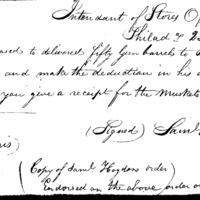 Intendant of Stores Of
Philad. 7 2
ased to delivered fifty Gun barrels to
and make the deduction in his
you give a receipt for the Muskets
(Signed) Saml.
ris)
(Copy of Saml. Hogdons order)
(Endorsed on the above order